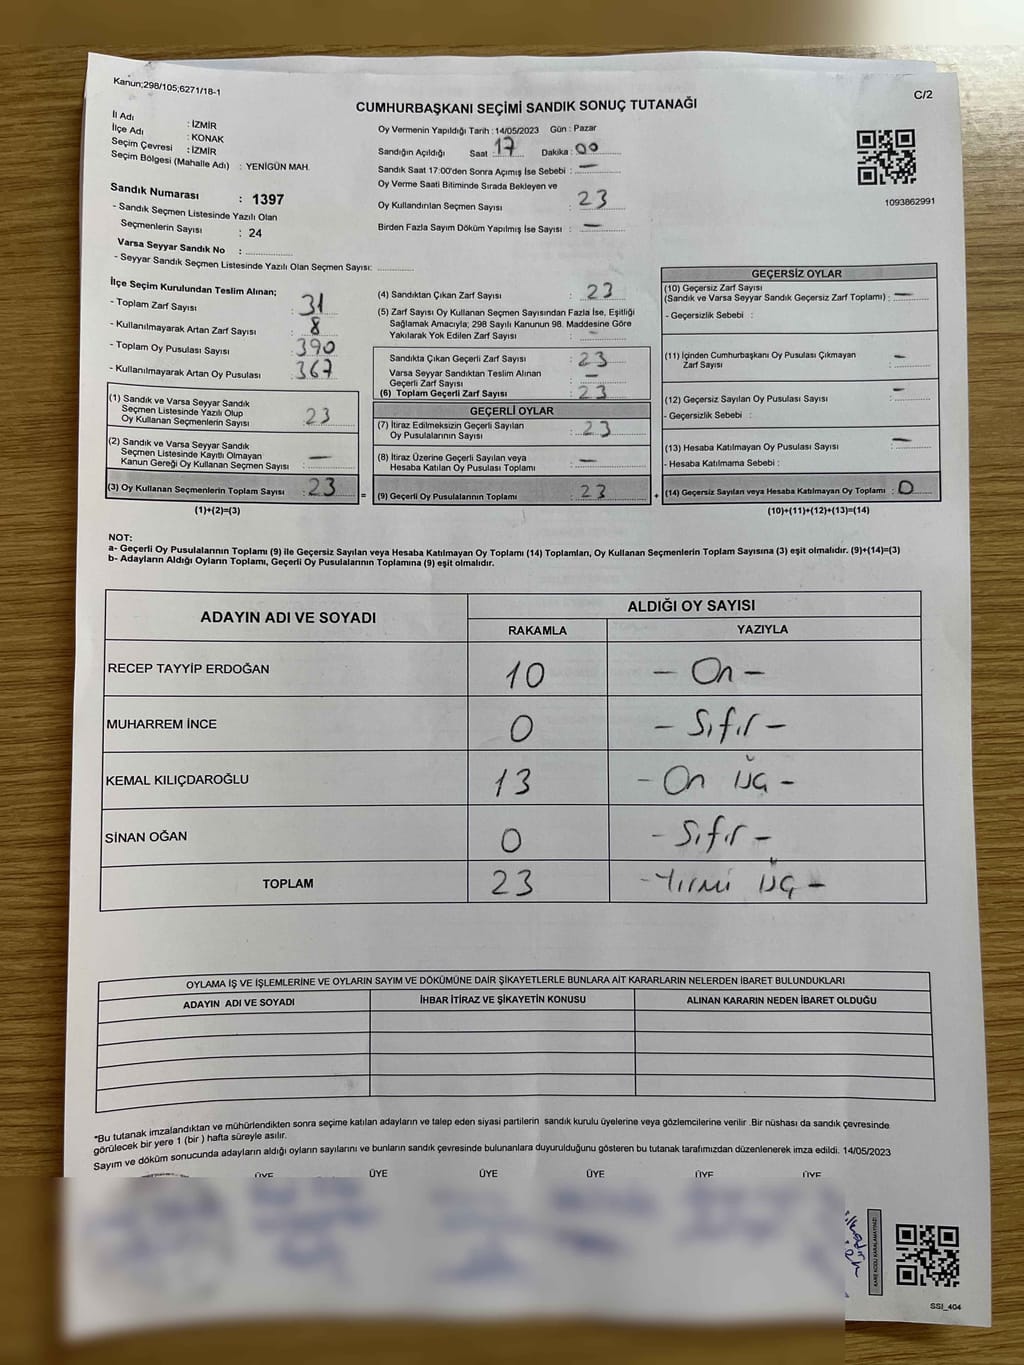 Kanun;298/105;6271/18-1
C/2
CUMHURBAŞKANI SEÇİMİ SANDIK SONUÇ TUTANAĞI
İl Adı : İZMİR
İlçe Adı : KONAK
Seçim Çevresi : İZMİR
Seçim Bölgesi (Mahalle Adı) : YENİGÜN MAH.
Sandık Numarası : 1397
- Sandık Seçmen Listesinde Yazılı Olan
Seçmenlerin Sayısı : 24
Varsa Seyyar Sandık No :
- Seyyar Sandık Seçmen Listesinde Yazılı Olan Seçmen Sayısı:
Oy Vermenin Yapıldığı Tarih : 14/05/2023 Gün : Pazar
Sandığın Açıldığı Saat : 17 Dakika : 00
Sandık Saat 17:00'den Sonra Açımış İse Sebebi : —
Oy Verme Saati Bitiminde Sırada Bekleyen ve
Oy Kullandırılan Seçmen Sayısı : 23
Birden Fazla Sayım Döküm Yapılmış İse Sayısı : —
1093862991
İlçe Seçim Kurulundan Teslim Alınan;
- Toplam Zarf Sayısı : 31
- Kullanılmayarak Artan Zarf Sayısı : 8
- Toplam Oy Pusulası Sayısı : 390
- Kullanılmayarak Artan Oy Pusulası : 367
(1) Sandık ve Varsa Seyyar Sandık
Seçmen Listesinde Yazılı Olup
Oy Kullanan Seçmen Sayısı : 23
(2) Sandık ve Varsa Seyyar Sandık
Seçmen Listesinde Kayıtlı Olmayan
Kanun Gereği Oy Kullanan Seçmen Sayısı : —
(3) Oy Kullanan Seçmenlerin Toplam Sayısı : 23
(1)+(2)=(3)
=
(4) Sandıktan Çıkan Zarf Sayısı : 23
(5) Zarf Sayısı Oy Kullanan Seçmen Sayısından Fazla İse, Eşitliği
Sağlamak Amacıyla; 298 Sayılı Kanunun 98. Maddesine Göre
Yakılarak Yok Edilen Zarf Sayısı : —
Sandıkta Çıkan Geçerli Zarf Sayısı : 23
Varsa Seyyar Sandıktan Teslim Alınan
Geçerli Zarf Sayısı : —
(6) Toplam Geçerli Zarf Sayısı : 23
GEÇERLİ OYLAR
(7) İtiraz Edilmeksizin Geçerli Sayılan
Oy Pusulalarının Sayısı : 23
(8) İtiraz Üzerine Geçerli Sayılan veya
Hesaba Katılan Oy Pusulası Toplamı : —
(9) Geçerli Oy Pusulalarının Toplamı : 23
+
GEÇERSİZ OYLAR
(10) Geçersiz Zarf Sayısı
(Sandık ve Varsa Seyyar Sandık Geçersiz Zarf Toplamı) : —
- Geçersizlik Sebebi :
(11) İçinden Cumhurbaşkanı Oy Pusulası Çıkmayan
Zarf Sayısı : —
(12) Geçersiz Sayılan Oy Pusulası Sayısı : —
- Geçersizlik Sebebi :
(13) Hesaba Katılmayan Oy Pusulası Sayısı : —
- Hesaba Katılmama Sebebi :
(14) Geçersiz Sayılan veya Hesaba Katılmayan Oy Toplamı : 0
(10)+(11)+(12)+(13)=(14)
NOT:
a- Geçerli Oy Pusulalarının Toplamı (9) ile Geçersiz Sayılan veya Hesaba Katılmayan Oy Toplamı (14) Toplamları, Oy Kullanan Seçmenlerin Toplam Sayısına (3) eşit olmalıdır. (9)+(14)=(3)
b- Adayların Aldığı Oyların Toplamı, Geçerli Oy Pusulalarının Toplamına (9) eşit olmalıdır.
ADAYIN ADI VE SOYADI
ALDIĞI OY SAYISI
RAKAMLA YAZIYLA
RECEP TAYYİP ERDOĞAN 10 - On -
MUHARREM İNCE 0 - Sıfır -
KEMAL KILIÇDAROĞLU 13 - On üç -
SİNAN OĞAN 0 - Sıfır -
TOPLAM 23 - Yirmi üç -
OYLAMA İŞ VE İŞLEMLERİNE VE OYLARIN SAYIM VE DÖKÜMÜNE DAİR ŞİKAYETLERLE BUNLARA AİT KARARLARIN NELERDEN İBARET BULUNDUKLARI
ADAYIN ADI VE SOYADI İHBAR İTİRAZ VE ŞİKAYETİN KONUSU ALINAN KARARIN NEDEN İBARET OLDUĞU
*Bu tutanak imzalandıktan ve mühürlendikten sonra seçime katılan adayların ve talep eden siyasi partilerin sandık kurulu üyelerine veya gözlemcilerine verilir .Bir nüshası da sandık çevresinde
görülecek bir yere 1 (bir ) hafta süreyle asılır.
Sayım ve döküm sonucunda adayların aldığı oyların sayılarını ve bunların sandık çevresinde bulunanlara duyurulduğunu gösteren bu tutanak tarafımızdan düzenlenerek imza edildi. 14/05/2023
ÜYE ÜYE ÜYE ÜYE ÜYE ÜYE
KARE KODU KARALAMAYINIZ!
SSI_404